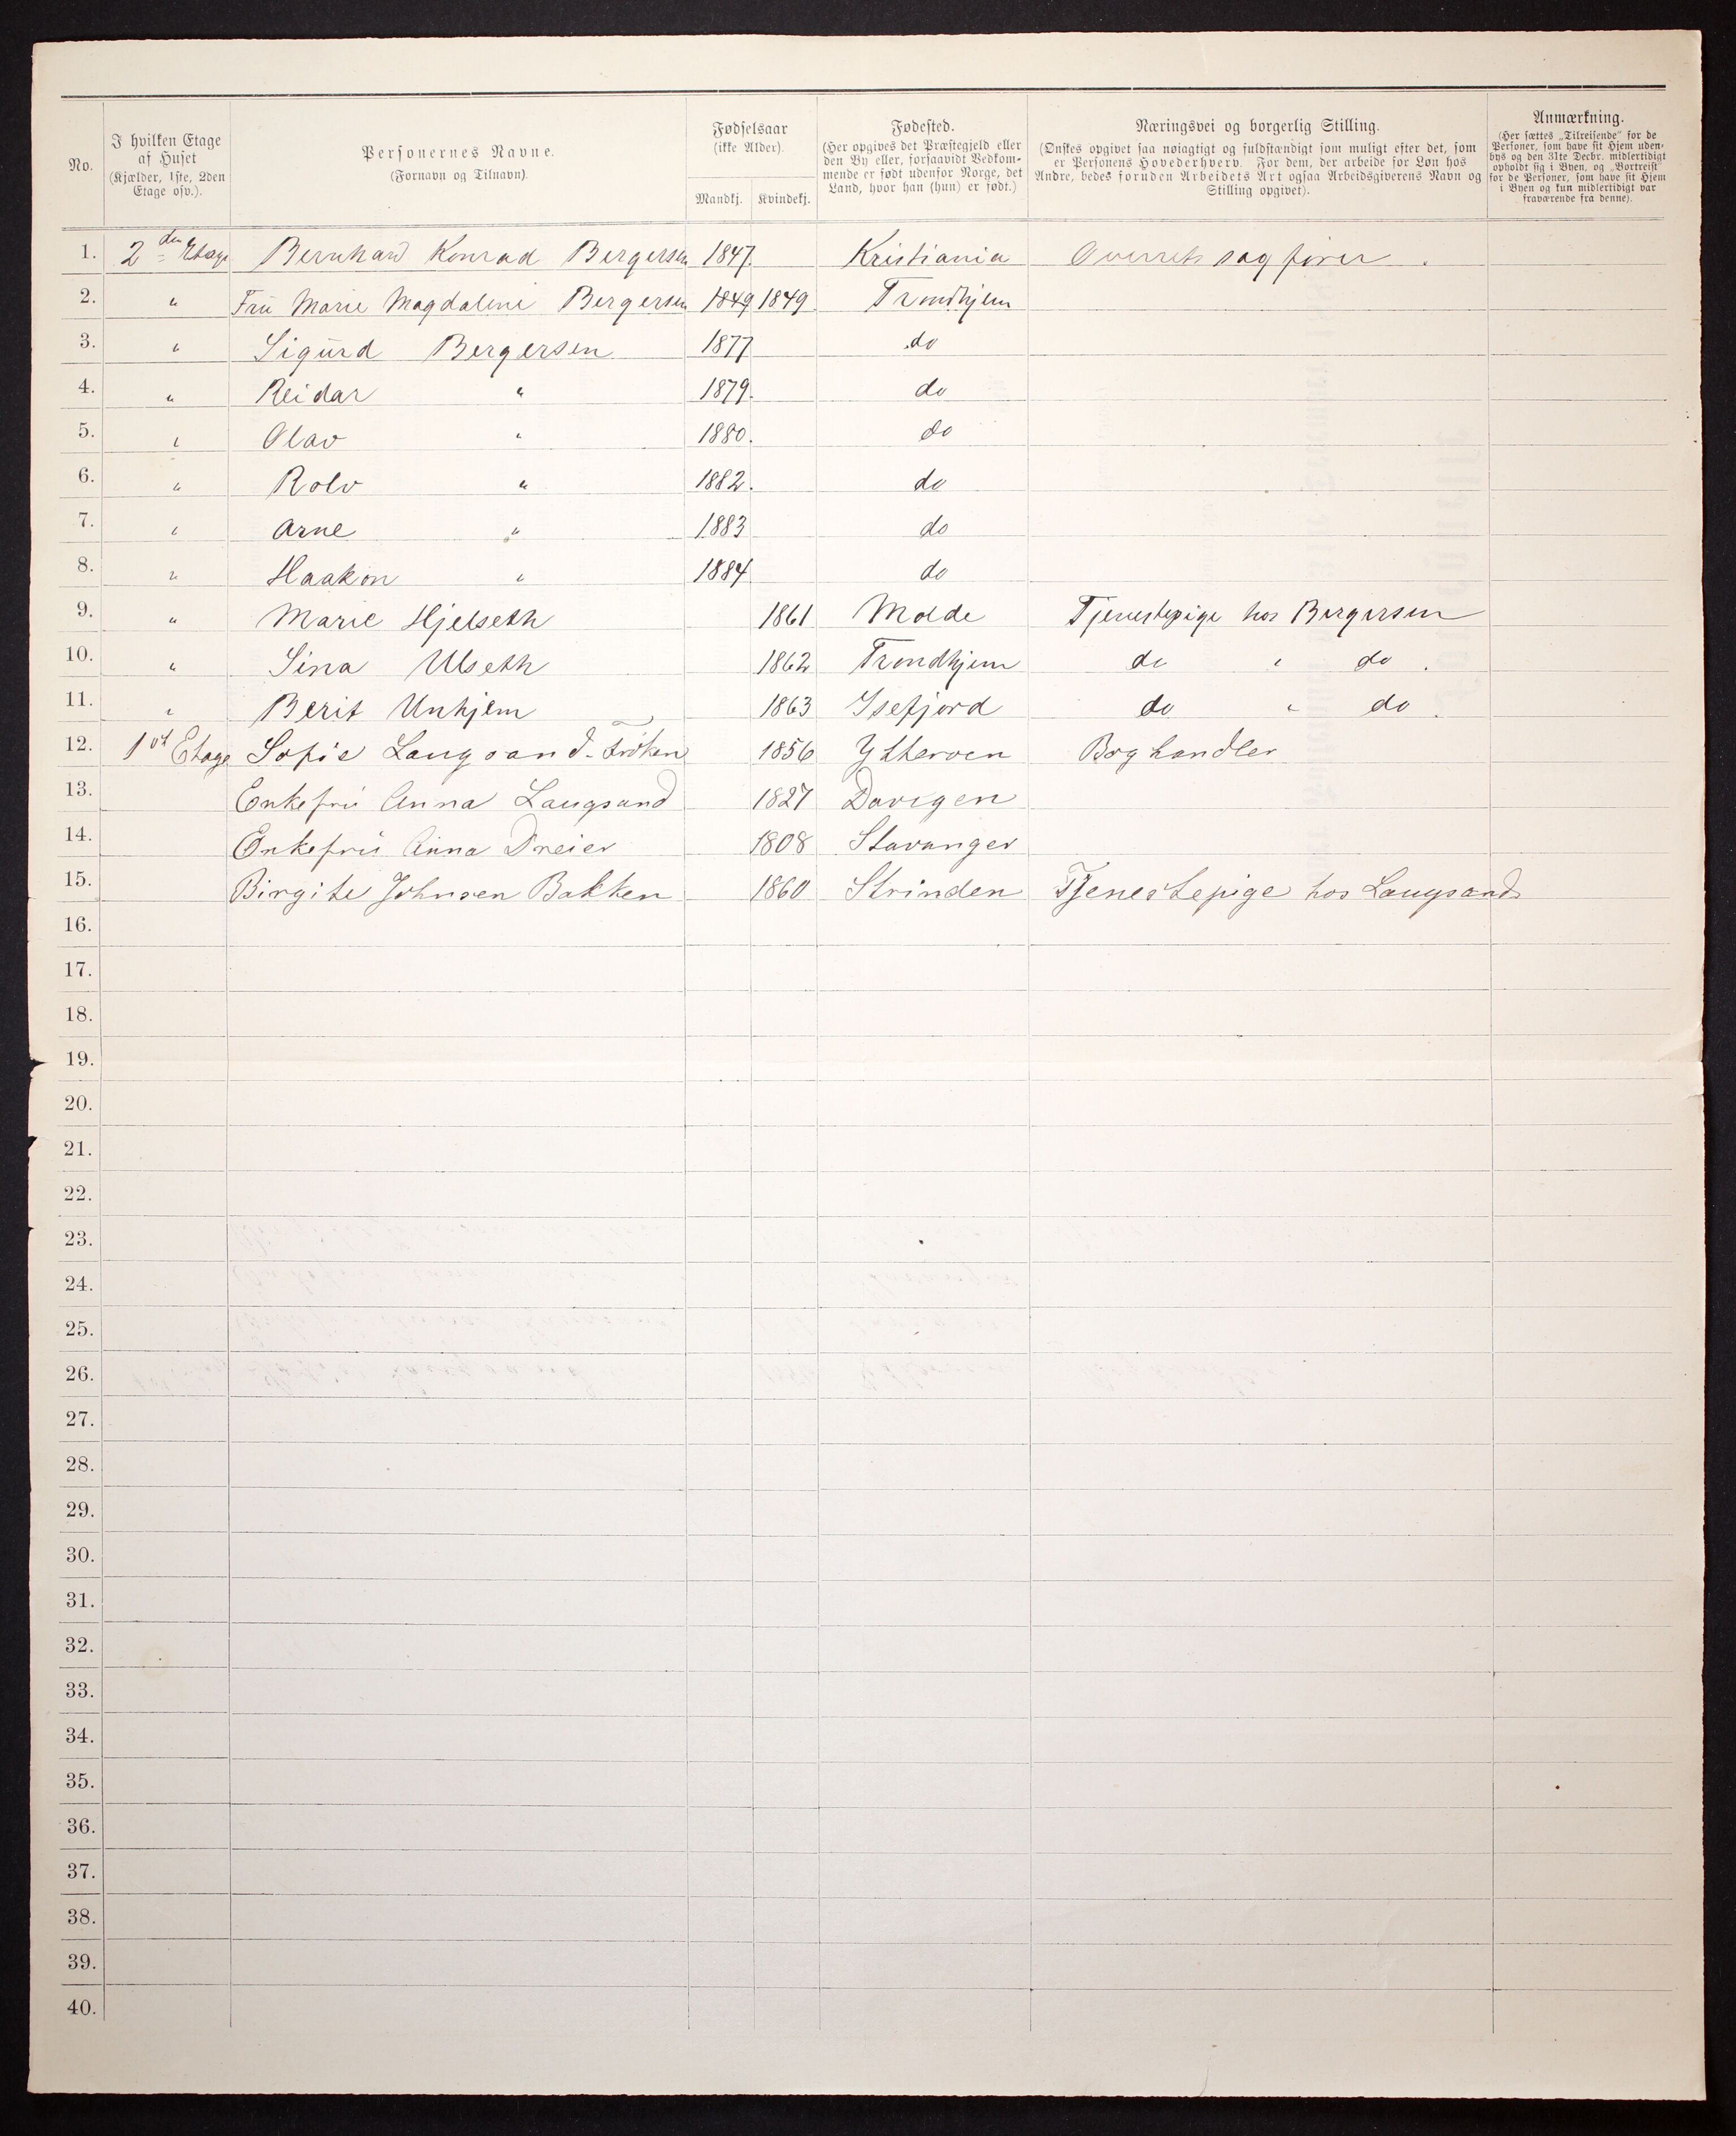 No.
I hvilken Etage
af Huset
(Kjælder, 1ste, 2den
Etage osv.).
Personernes Navne.
(Fornavn og Tilnavn).
Fødselsaar
(ikke Alder).
Mandkj. Kvindekj.
Fødested.
(Her opgives det Præstegjeld eller
den By eller, forsaavidt Vedkom-
mende er født udenfor Norge, det
Land, hvor han (hun) er født.)
Næringsvei og borgerlig Stilling.
(Ønskes opgivet saa nøiagtigt og fuldstændigt som muligt efter det, som
er Personens Hovederhverv. For dem, der arbeide for Løn hos
Andre, bedes foruden Arbeidets Art ogsaa Arbeidsgiverens Navn og
Stilling opgivet).
Anmærkning.
(Her sættes „Tilreisende" for de
Personer, som have sit Hjem uden-
bys og den 31te Decbr. midlertidigt
opholdt sig i Byen, og „Bortreist"
for de Personer, som have sit Hjem
i Byen og kun midlertidigt var
fraværende fra denne).
1. 2den Etage Bernhard Konrad Bergersen 1847 Kristiania Overretssagfører.
2. " Fru Marie Magdalene Bergersen 1849 1849 Trondhjem
3. " Sigurd Bergersen 1877 do
4. " Reidar " 1879. do
5. " Olav " 1880. do
6. " Rolv " 1882. do
7. " Arne " 1883 do
8. " Haakon " 1884 do
9. " Marie Hjelseth 1861 Molde Tjenestepige hos Bergersen
10. " Sina Ulseth 1862 Trondhjem do " do.
11. " Berit Unhjem 1863 Isefjord do " do.
12. 1st Etage Sofie Laugsand - Frøken 1856 Ytterøen Boghandler
13. Enkefru Anna Laugsand 1827 Davigen
14. Enkefru Anna Dreier 1808 Stavanger
15. Birgite Johnsen Bakken 1860 Strinden Tjenestepige hos Laugsand
16.
17.
18.
19.
20.
21.
22.
23.
24.
25.
26.
27.
28.
29.
30.
31.
32.
33.
34.
35.
36.
37.
38.
39.
40.